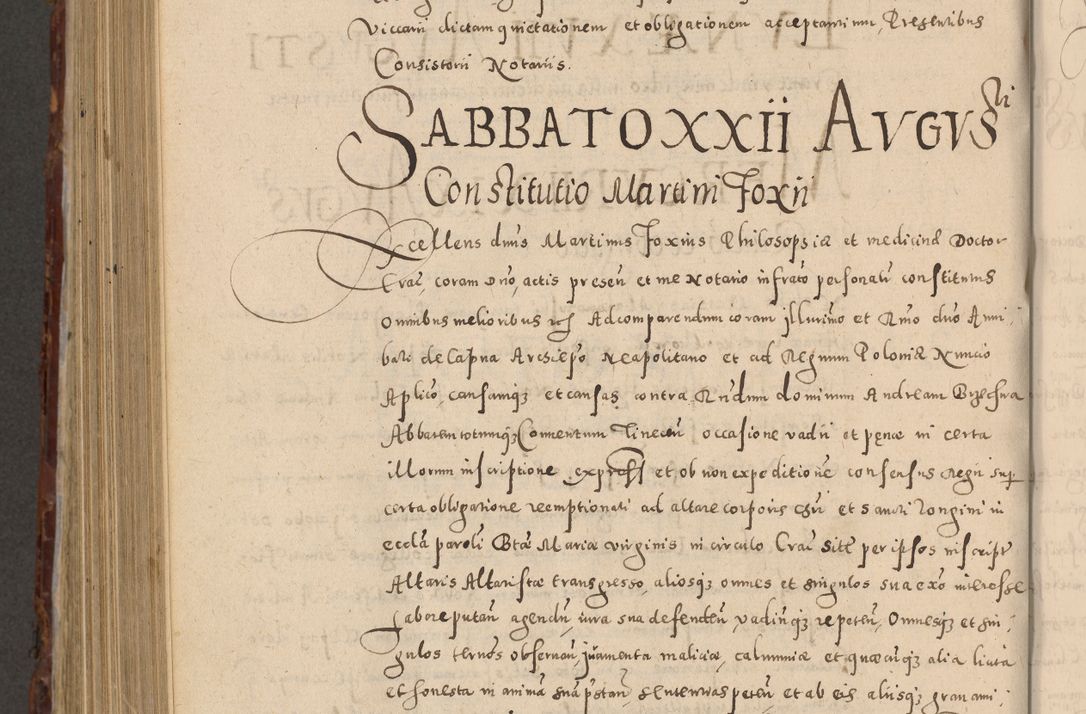 Viccarii dictam quietationem et obligationem acceptantium, Presentibus
Consistorii Notariis.
SABBATO XXII AVGVSti
Constitutio Martini Foxii
Excellens dnus Martinus Foxius Philosophiæ et medicinæ Doctor
Crac, coram Dno, actis presen et me Notario infrato personalr constitutus
Omnibus melioribus Ad comparendum coram jllurimo et Rmo dno Anni,
bali de Capua Archiepo Neapolitano et ad Regnum Poloniæ Nuncio
Aplico, causamqz et causas contra Rndum dominum Andream Brzechwa
Abbatem totumqz Conuentum Tinecen occasione vadii et pęnæ in certa
illorum inscriptione express et ob non expeditione consensus Regii sup
certa obligatione reemptionali ad altare corporis Chri et Sancti Longini in
ecclâ paroli Btæ Mariæ virginis in circulo Crac site per ipsos inscript
Altaris Altaristæ transgresso, aliosqz omnes et singulos sua exo interesse
Labore putan agendu, iura sua defenden, vadiuqz repeten, Omnesqz et sin,
gulos ternos obseruan, juramenta maliciæ, calumniæ et quæcuqz alia licita
et honesta in animâ suâ pstan, Sententias peten et ab eis aliisqz grauami,